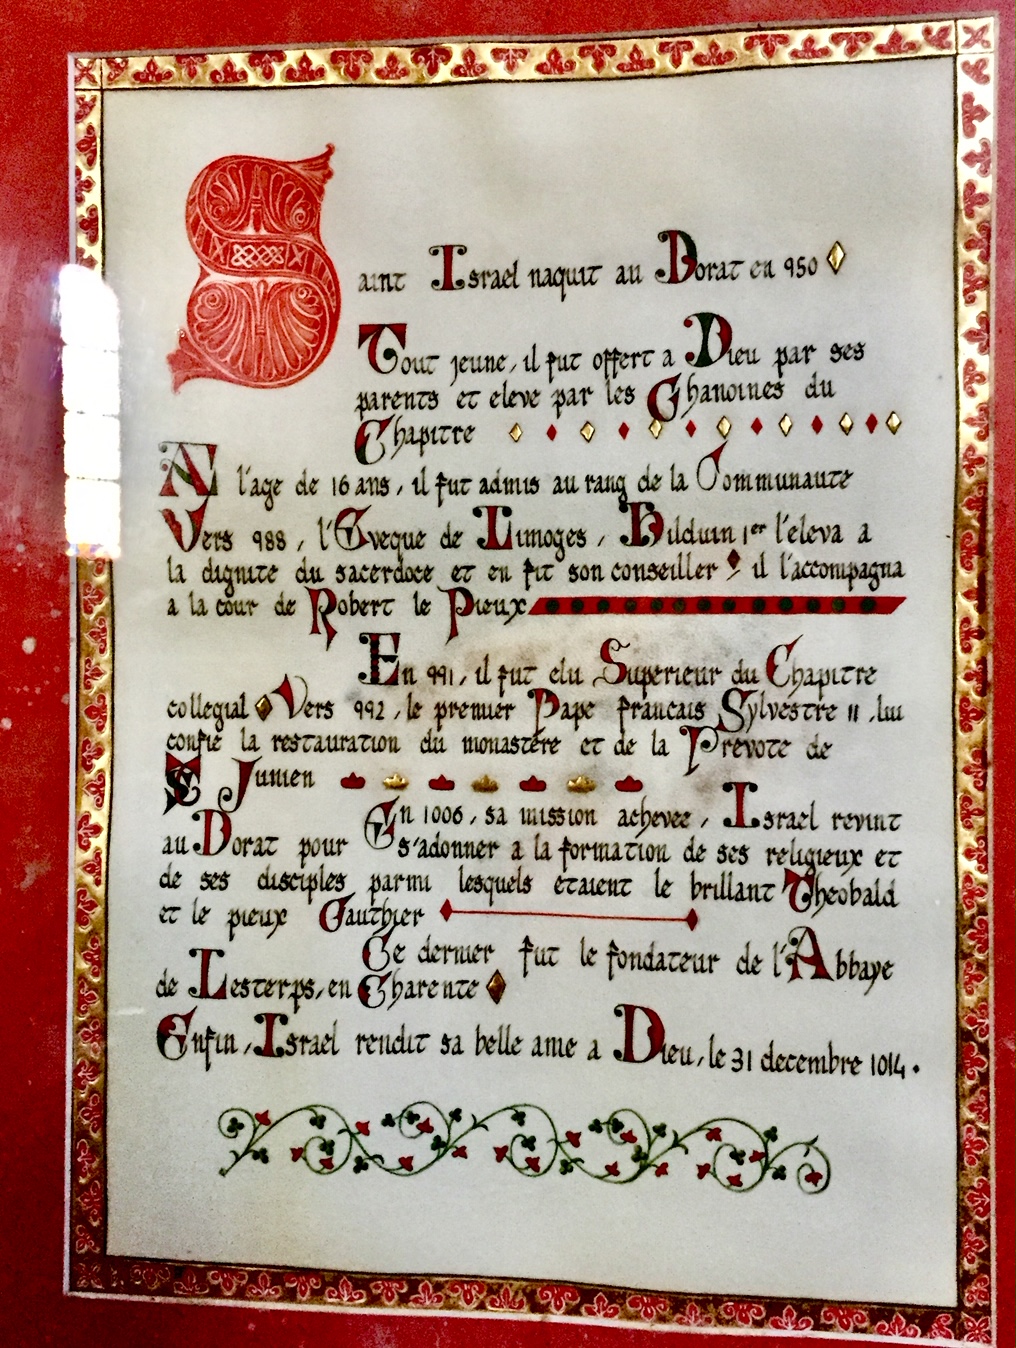 Saint Israel naquit au Dorat en 950
Tout jeune, il fut offert a Dieu par ses
parents et eleve par les Chanoines du
Chapitre
A l'age de 16 ans, il fut admis au rang de la Communaute
Vers 988, l'Eveque de Limoges, Hilduin 1er l'eleva a
la dignite du sacerdoce et en fit son conseiller il l'accompagna
a la cour de Robert le Pieux
En 991, il fut elu Superieur du Chapitre
collegial Vers 992, le premier Pape francais Sylvestre II, lui
confie la restauration du monastère et de la Prevote de
St Junien
En 1006, sa mission achevee, Israel revint
au Dorat pour s'adonner a la formation de ses religieux et
de ses disciples parmi lesquels etaient le brillant Theobald
et le pieux Gauthier
Ce dernier fut le fondateur de l'Abbaye
de Lesterps, en Charente
Enfin, Israel rendit sa belle ame a Dieu, le 31 decembre 1014.